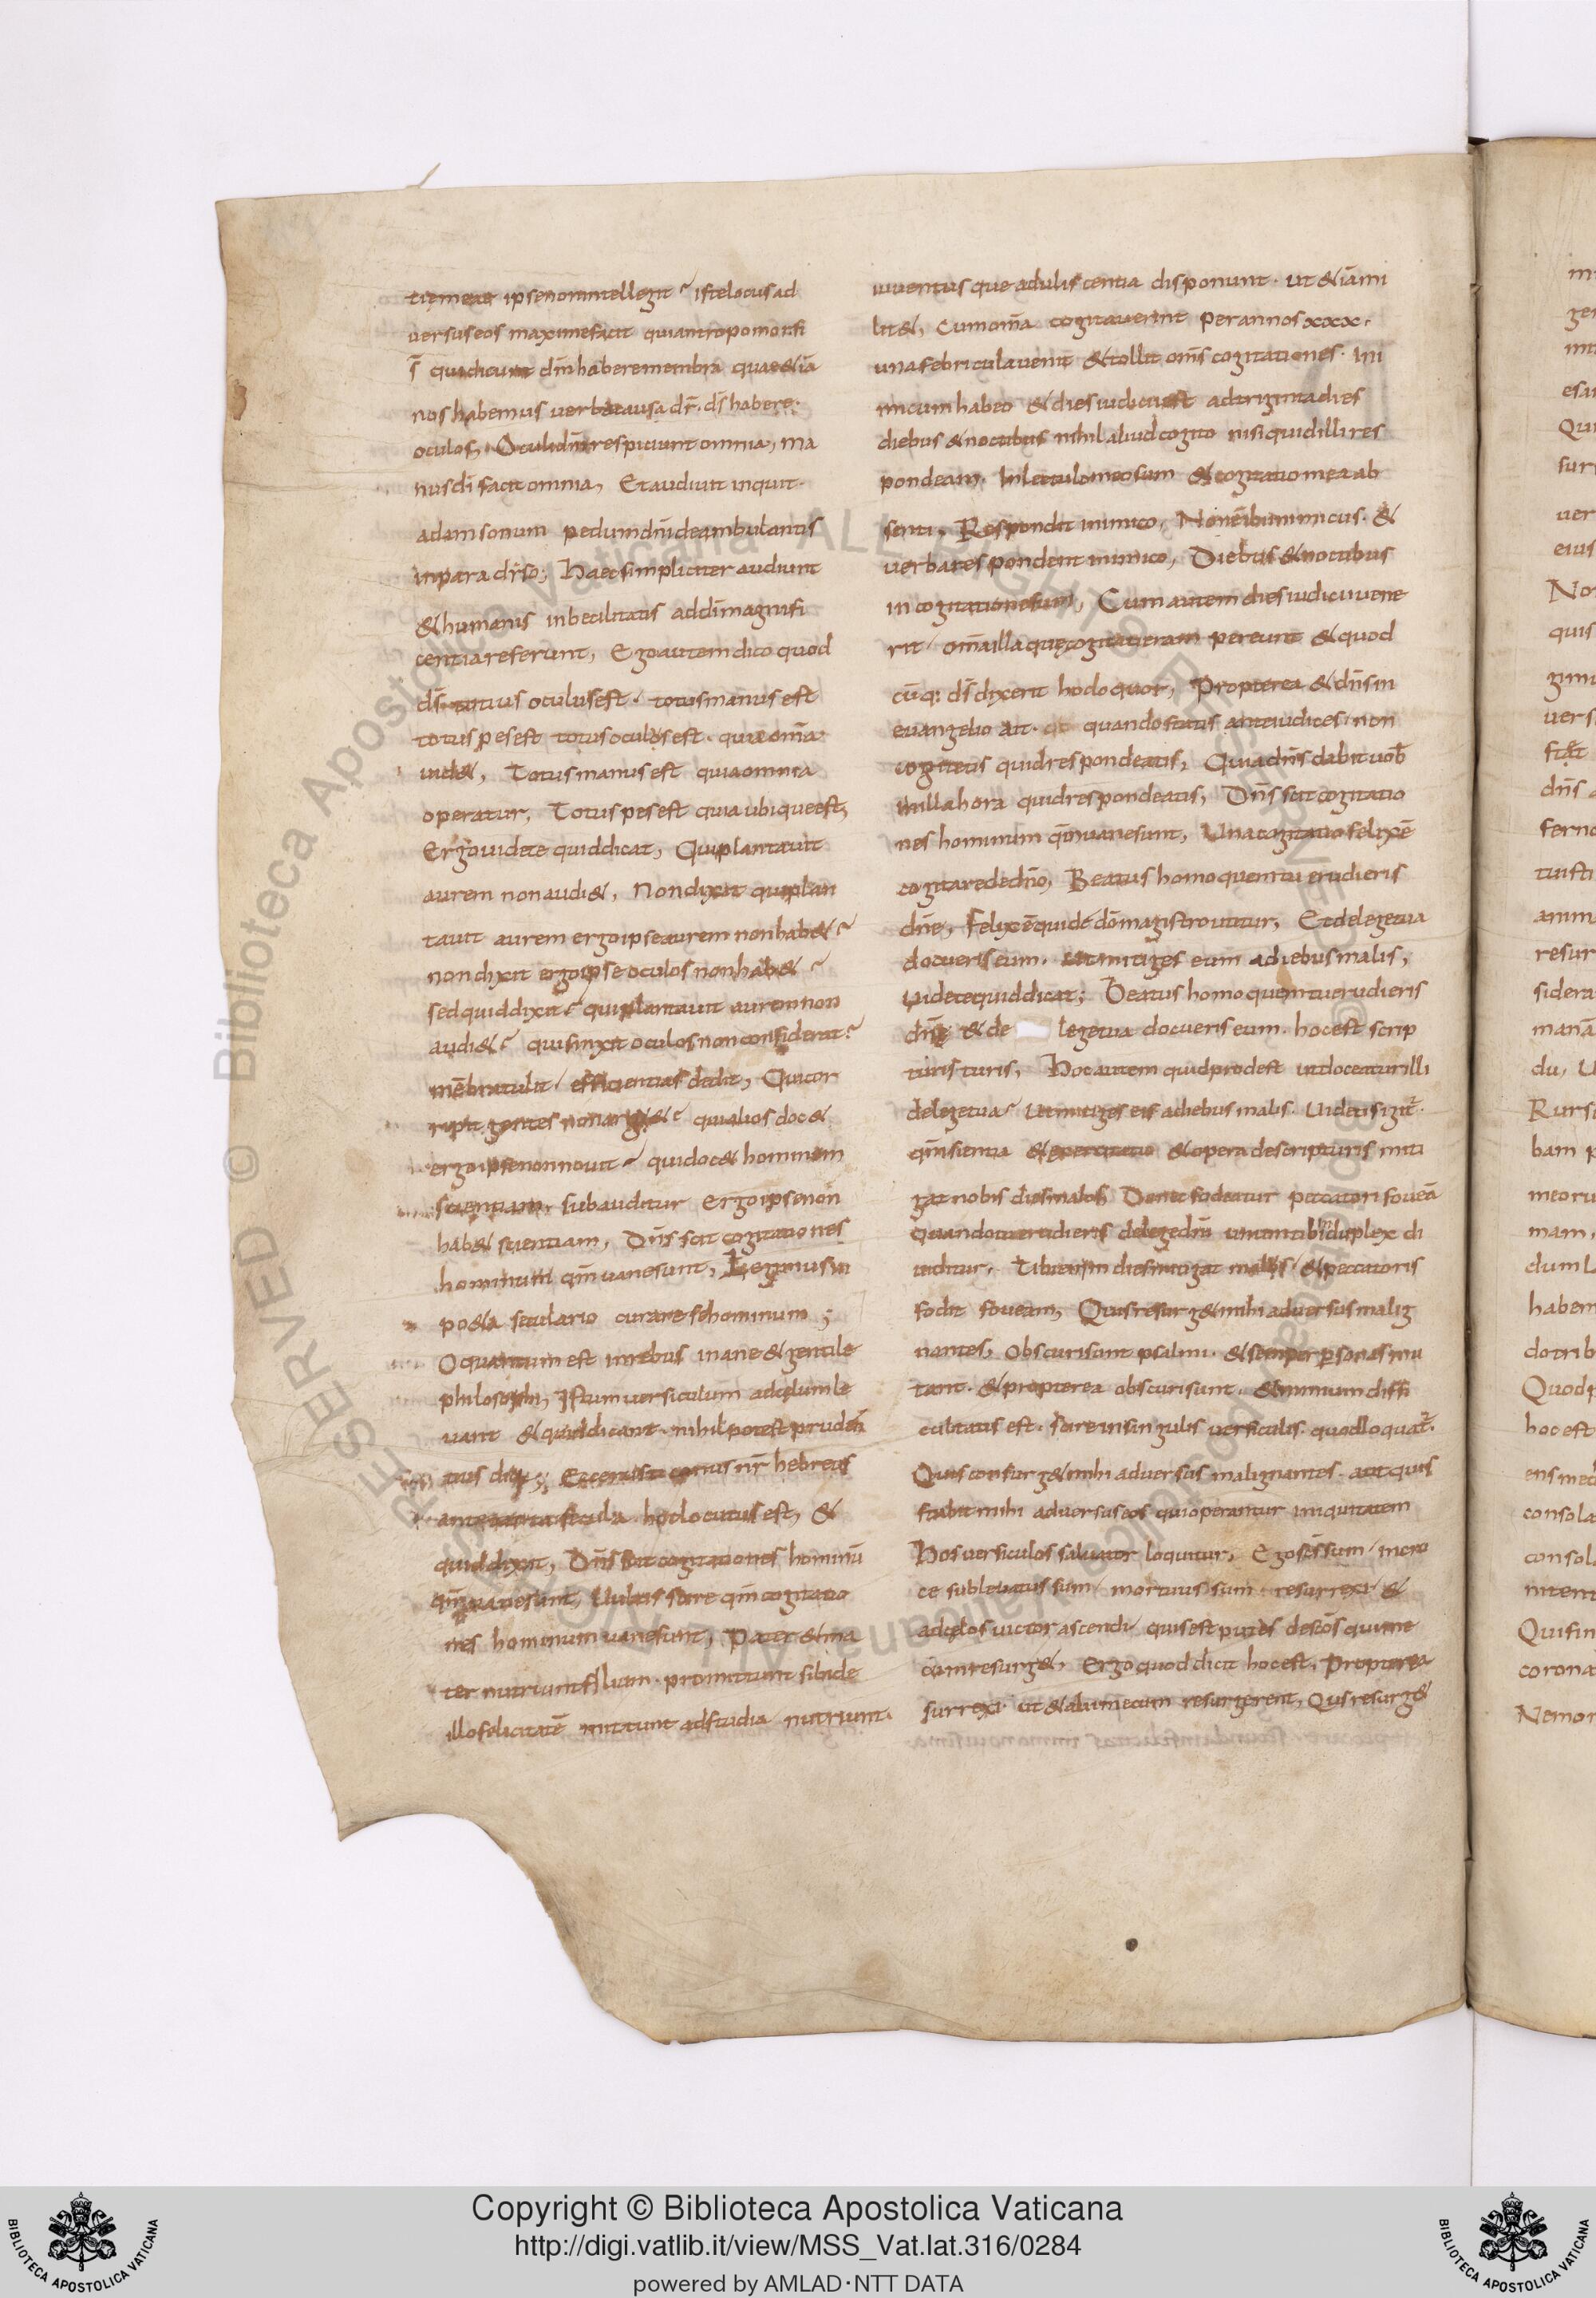 tiemeae ipse non intellegit? iste locus ad
versus eos maxime facit qui antropomorfi
t̄ qui dicunt dn̄m habere membra quae &iā
nos habemus verbi causa dr̄. ds̄ habere.
oculos, Oculi dn̄i respiciunt omnia, ma
nus di facit omnia, Et audivit inquit.
adam sonum pedum dn̄i deambulantis
in paradiso; Haec simpliciter audiunt
& humanis inbecilitatis ad dī magnifi
centia referunt, Ego autem dico quod
ds̄ totus oculus est. totus manus est
totus pes est totus oculus est. quia om̄a
vid&, Totus manus est quia omnia
operatur, Totus pes est quia ubique est,
Ergo videte quid dicat, Qui plantavit
aurem non audi&, Non dixit qui plan
tavit aurem ergo ipse aurem non hab&?
non dixit ergo ipse oculos non hab&?
sed quid dixit? qui plantavit aurem non
audi&? qui finxit oculos non considerat?
mēbra tulit efficientias dedit, Qui cor
ripit gentes non argu&? qui alios doc&
ergo ipse non novit? qui doc& hominem
scientiam. subauditur Ergo ipse non
hab& scientiam, Dn̄s scit cogitationes
hominum qm̄ vane sunt, Legimus in
po&a seculario curare se hominum;
O quantum est in rebus inane & gentile
philosophi, Istum versiculum ad cęlum le
vant & quid dicant. nihil potest pruden
tius dici; Ecce rusticanus nr̄ hebreus
ante tanta secula hoc locutus est, &
quid dixit, Dn̄s scit cogitationes hominū
qm̄ vane sunt, Vultis scire qm̄ cogitatio
nes hominum vane sunt, Pater & ma
ter nutriunt filium. promittunt sibi de
illo felicitatē mittunt ad studia nutriunt.
iuventus que aduliscentia disponunt. ut &iā mi
lit&, Cum om̄a cogitaverint per annos xxx.
una febricula venit & tollit om̄s cogitationes. Ini
micum habeo & dies iudicii est ad triginta dies
diebus & noctibus nihil aliud cogito nisi quid illi res
pondeam. In lectulo meo sum & cogitatio mea ab
senti, Respondit inimico, Non ē ibi inimicus. &
verba respondent inimico, Diebus & noctibus
in cogitatione sum, Cum autem dies iudicii vene
rit om̄a illa quę cogitaveram pereunt & quod
cūq: ds̄ dixerit hoc loquor, Propterea & dn̄s in
evangelio ait. quando statis ante iudices non
cogitetis quid respondeatis, Quia dn̄s dabit vob̄
in illa hora quid respondeatis, Dn̄s scit cogitatio
nes hominum qm̄ vane sunt, Una cogitatio felix ē
cogitare de dn̄o, Beatus homo quem tu erudieris
dn̄e, Felix ē qui de dō magistro utitur, Et de lege tua
docueris eum. ut mitiges eum a diebus malis,
Videte quid dicat; Beatus homo quem tu erudieris
dn̄e & de lege tua docueris eum. hoc est scrip
turis turis, Hoc autem quid prodest ut doceatur illi
de lege tua? Ut mitiges eis a diebus malis. Videtis igit̄.
qm̄ sientia & exercitatio & opera de scripturis miti
gat nobis dies malos Donec fodeatur peccatori foveā
Quando tu erudieris de lege dn̄i viventibus duplex di
viditur. Tibi enim dies mitigat malos & peccatoris
fodit foveam, Quis resurg& mihi adversus malig
nantes, Obscuri sunt psalmi. & semper p̄sonas mu
tant. & propterea obscuri sunt. & nimium diffi
cultatis est. scire in singulis versiculis. quod loquat̄.
Quis consurg& mihi adversus malignantes. aut quis
stabit mihi adversus eos qui operantur iniquitatem
Hos versiculos salvator loquitur, Ego sēs sum in cru
ce sublevatus sum mortuus sum resurrexi &
ad cęlos victor ascendi quis est putes de scōs qui me
cum resurg&, Ergo quod dicit hoc est, Propterea
surrexi ut & alii mecum resurgerent, Quis resurg&
Copyright © Biblioteca Apostolica Vaticana
http://digi.vatlib.it/view/MSS_Vat.lat.316/0284
powered by AMLAD·NTT DATA
BIBLIOTECA APOSTOLICA VATICANA
BIBLIOTECA APOSTOLICA VATICANA